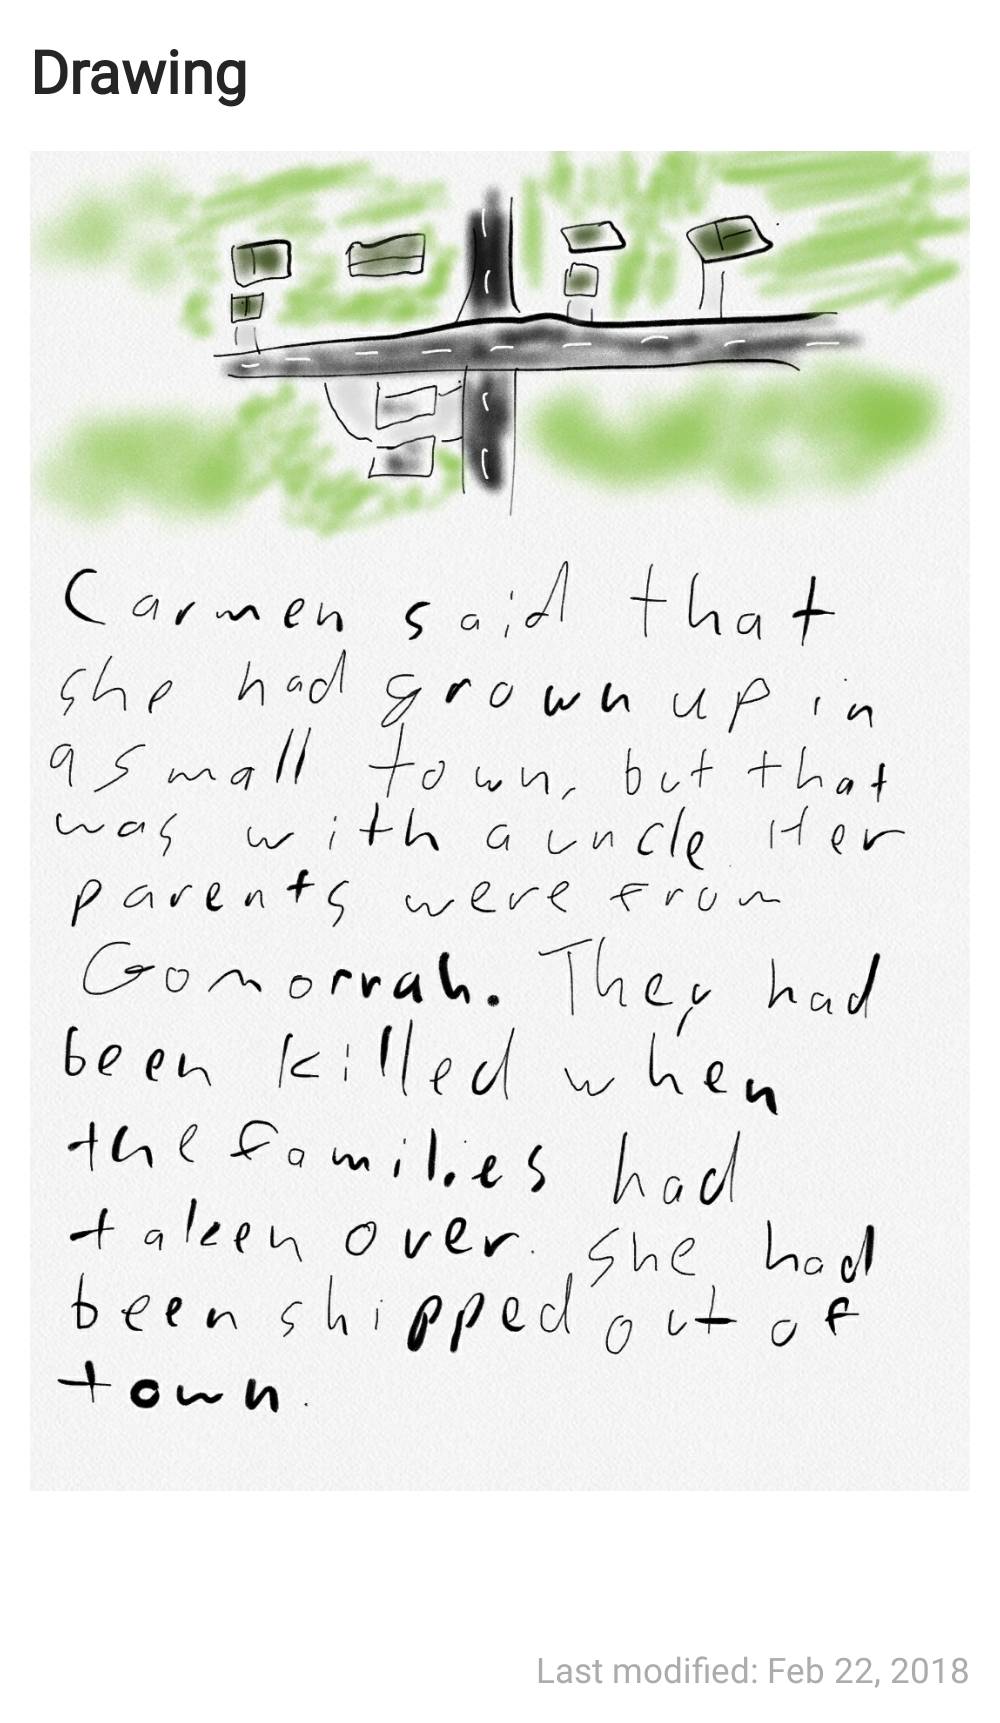 Drawing
Carmen said that
she had grown up in
a small town, but that
was with a uncle. Her
parents were from
Gomorrah. They had
been killed when
the families had
taken over. She had
been shipped out of
town.
Last modified: Feb 22, 2018